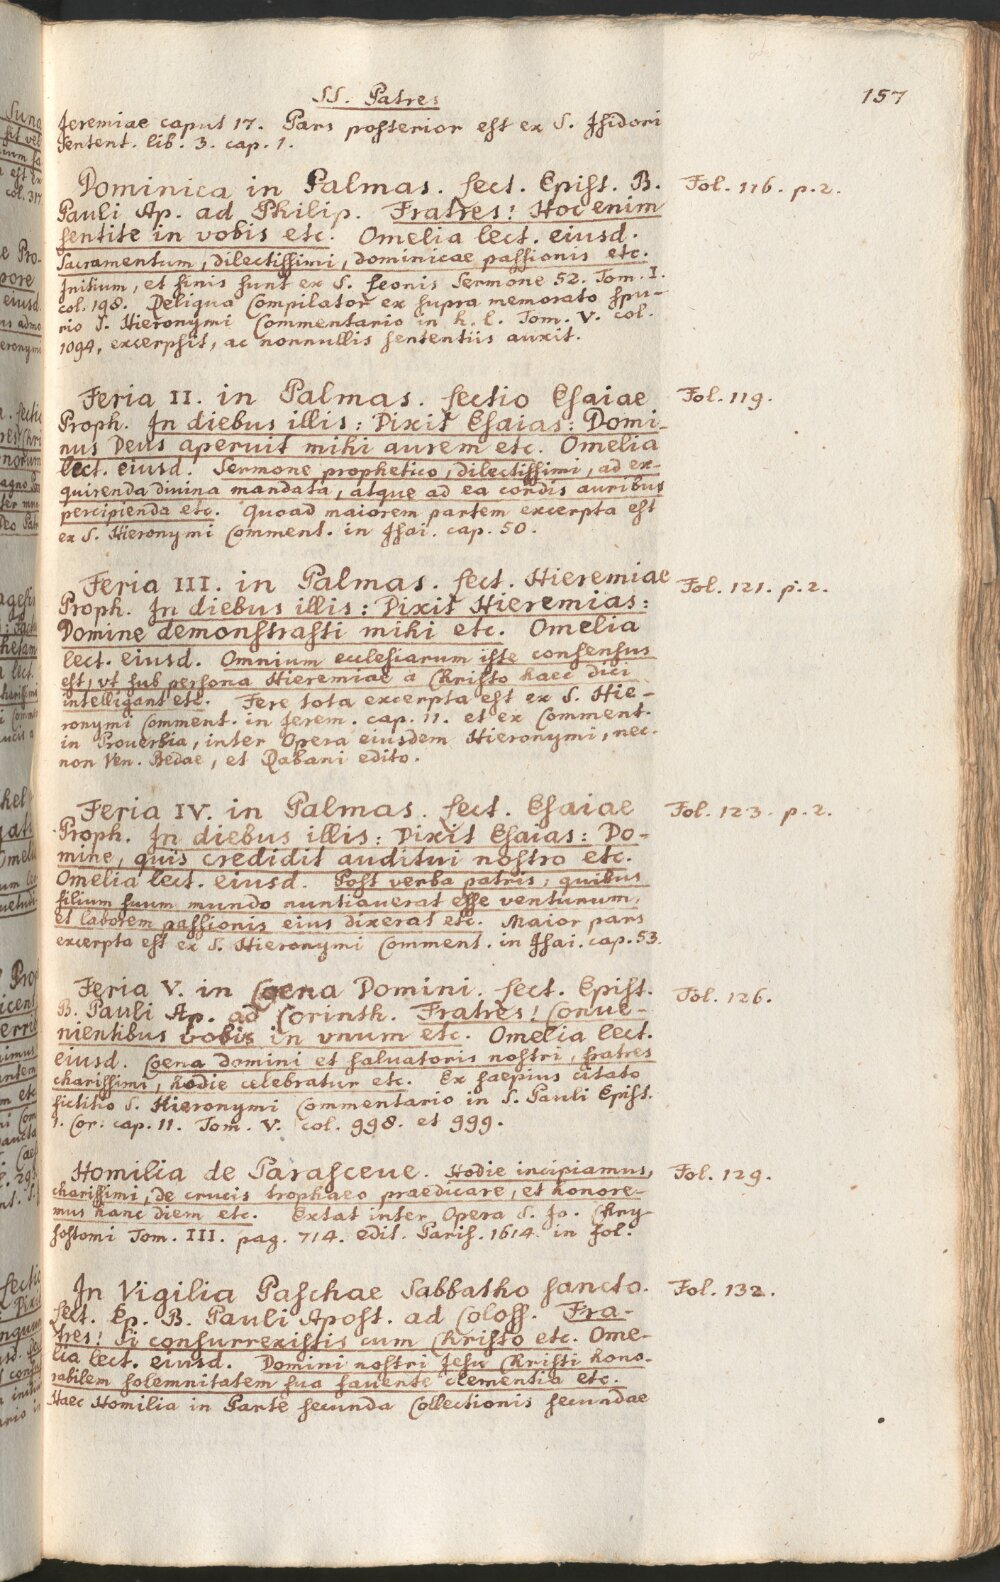 SS. Patres
157
Jeremiae caput 17. Pars posterior est ex S. Isidori
Sentent. lib. 3. cap. 1.
Dominica in Palmas. Lect. Epist. B.
Fol. 116. p. 2.
Pauli Ap. ad Philip. Fratres! Hoc enim
sentite in vobis etc. Omelia lect. eiusd.
Sacramentum, dilectissimi, dominicae passionis etc.
Initium, et finis sunt ex S. Leonis Sermone 52. Tom. I.
col. 198. Reliqua Compilator ex supra memorato spu-
rio S. Hieronymi Commentario in h. l. Tom. V. col.
1094, excerpsit, ac nonnullis sententiis auxit.
Feria II. in Palmas. Lectio Esaiae
Fol. 119.
Proph. In diebus illis: Dixit Esaias: Domi-
nus Deus aperuit mihi aurem etc. Omelia
lect. eiusd. Sermone prophetico, dilectissimi, ad ex-
quirenda divina mandata, atque ad ea cordis auribus
percipienda etc. Quoad maiorem partem excerpta est
ex S. Hieronymi Comment. in Isai. cap. 50.
Feria III. in Palmas. Lect. Hieremiae
Fol. 121. p. 2.
Proph. In diebus illis: Dixit Hieremias:
Domine demonstrasti mihi etc. Omelia
lect. eiusd. Omnium ecclesiarum iste consensus
est, vt sub persona Hieremiae a Christo haec dici
intelligant etc. Fere tota excerpta est ex S. Hie-
ronymi Comment. in Jerem. cap. 11. et ex Comment.
in Prouerbia, inter Opera eiusdem Hieronymi, nec-
non Ven. Bedae, et Rabani edito.
Feria IV. in Palmas. Lect. Esaiae
Fol. 123. p. 2.
Proph. In diebus illis: Dixit Esaias: Do-
mine, quis credidit auditui nostro etc.
Omelia lect. eiusd. Post verba patris, quibus
filium suum mundo nuntiauerat esse venturum,
et laborem passionis eius dixerat etc. Maior pars
excerpta est ex S. Hieronymi Comment. in Isai. cap. 53.
Feria V. in Coena Domini. Lect. Epist.
Fol. 126.
B. Pauli Ap. ad Corinth. Fratres! Conue-
nientibus vobis in vnum etc. Omelia lect.
eiusd. Coena domini et saluatoris nostri, fratres
charissimi, hodie celebratur etc. Ex saepius citato
fictitio S. Hieronymi Commentario in S. Pauli Epist.
1. Cor: cap. 11. Tom. V. col. 998. et 999.
Homilia de Parasceue. Hodie incipiamus,
Fol. 129.
charissimi, de crucis trophaeo praedicare, et honore-
mus hanc diem etc. Extat inter Opera S. Jo. Chry-
sostomi Tom. III. pag. 714. edit. Paris. 1614. in fol.
In Vigilia Paschae Sabbatho sancto.
Fol. 132.
Lect. Ep. B. Pauli Apost. ad Coloss. Fra-
tres! Si consurrexistis cum Christo etc. Ome-
lia lect. eiusd. Domini nostri Jesu Christi hono-
rabilem solemnitatem sua fauente clementia etc.
Haec Homilia in Parte secunda Collectionis secundae